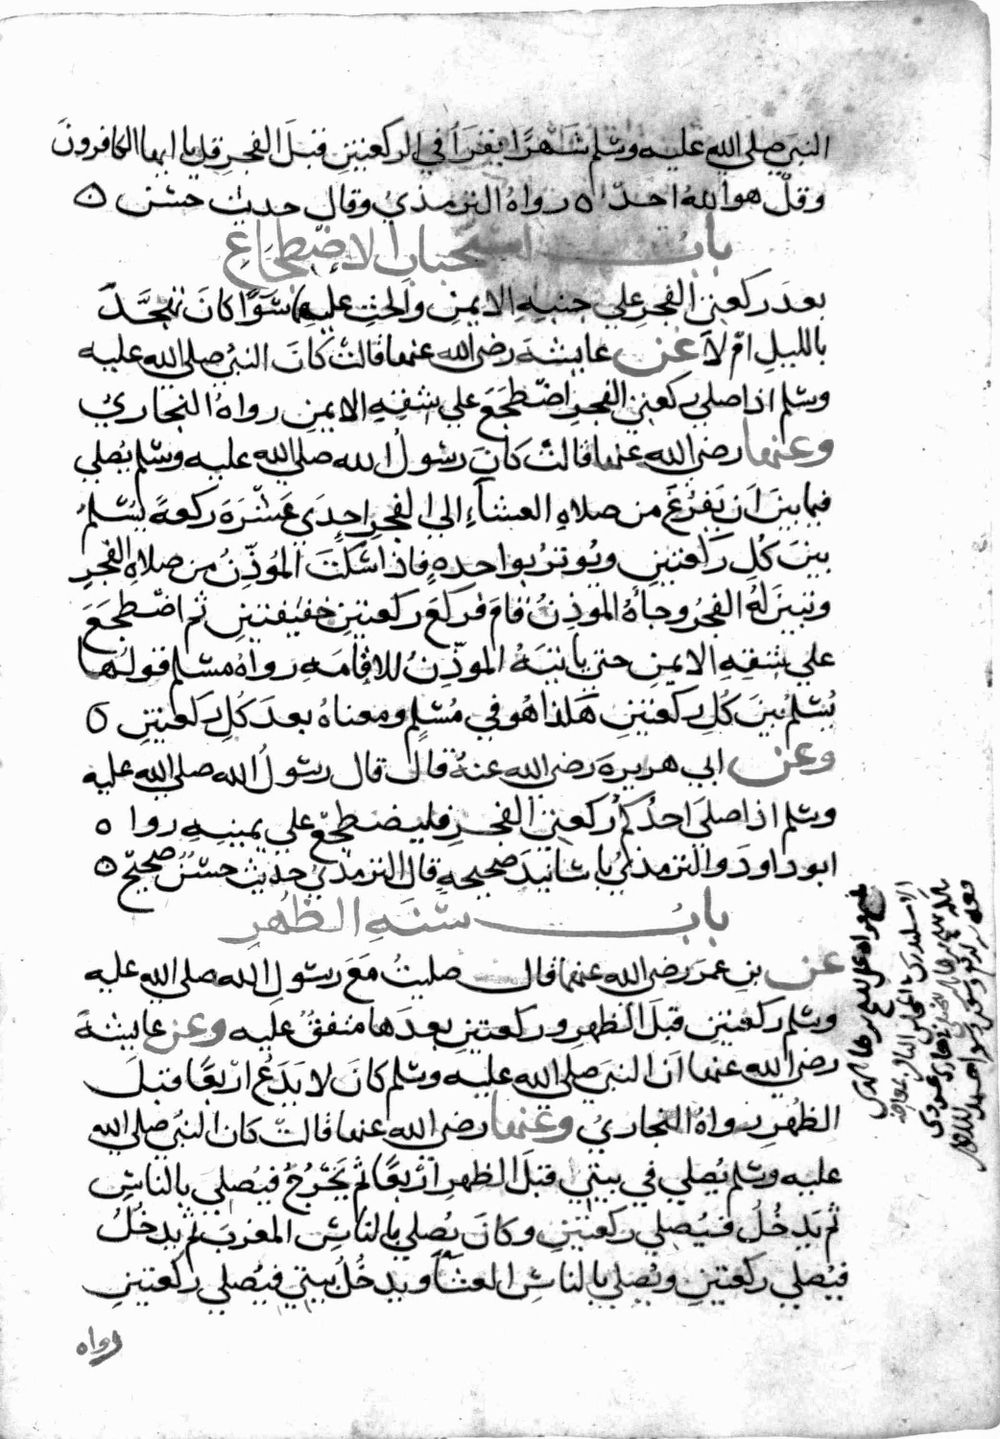 النبي صلى الله عليه وسلم شهرا يقرأ في الركعتين قبل الفجر قل يا ايها الكافرون
وقل هو الله احد ه رواه الترمذي وقال حديث حسن ه
باب استحباب الاضطجاع
بعد ركعتي الفجر علي جنبه الايمن والحث عليه سوا كان تهجد
بالليل ام لا عن عايشة رضي الله عنها قالت كان النبي صلى الله عليه
وسلم اذا صلي ركعتي الفجر اضطجع علي شقه الايمن رواه البخاري
وعنها رضي الله عنها قالت كان رسول الله صلى الله عليه وسلم يصلي
فيما بين ان يفرغ من صلاه العشاء الي الفجر احدي عشرة ركعة يسلم
بين كل ركعتين ويوتر بواحده فاذا سكت الموذن من صلاه الفجر
وتبين له الفجر وجاه الموذن قام فركع ركعتين خفيفتين ثم اضطجع
علي شقه الايمن حتي ياتيه الموذن للاقامه رواه مسلم قولها
يسلم بين كل ركعتين هكذا هو في مسلم ومعناه بعد كل ركعتين ه
وعن ابي هريرة رضي الله عنه قال قال رسول الله صلى الله عليه
وسلم اذا صلي احدكم ركعتي الفجر فليضطجع علي يمينه روا ه
ابو داود والترمذي باسانيد صحيحه قال الترمذي حديث حسن صحيح ه
باب سنه الظهر
عن بن عمر رضي الله عنهما قال صليت مع رسول الله صلى الله عليه
وسلم ركعتين قبل الظهر وركعتين بعدها متفق عليه وعن عايشة
رضي الله عنها ان النبي صلى الله عليه وسلم كان لا يدع اربعا قبل
الظهر رواه البخاري وعنها رضي الله عنها قالت كان النبي صلى الله
عليه وسلم يصلي في بيتي قبل الظهر اربعا ثم يخرج فيصلي بالناس
ثم يدخل فيصلي ركعتين وكان يصلي بالناس المغرب ثم يدخل
فيصلي ركعتين ويصلي بالناس العشا ويدخل بيتي فيصلي ركعتين
رواه